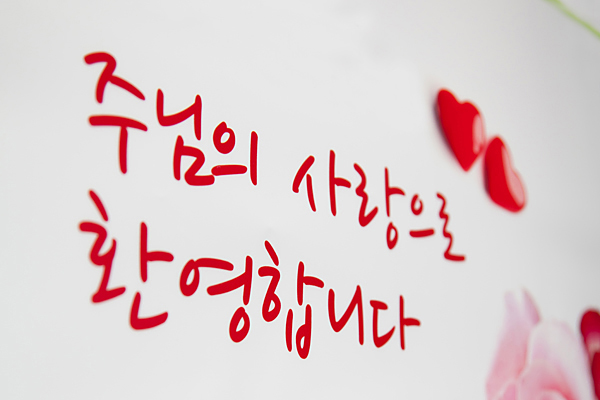 주님의 사랑으로
환영합니다